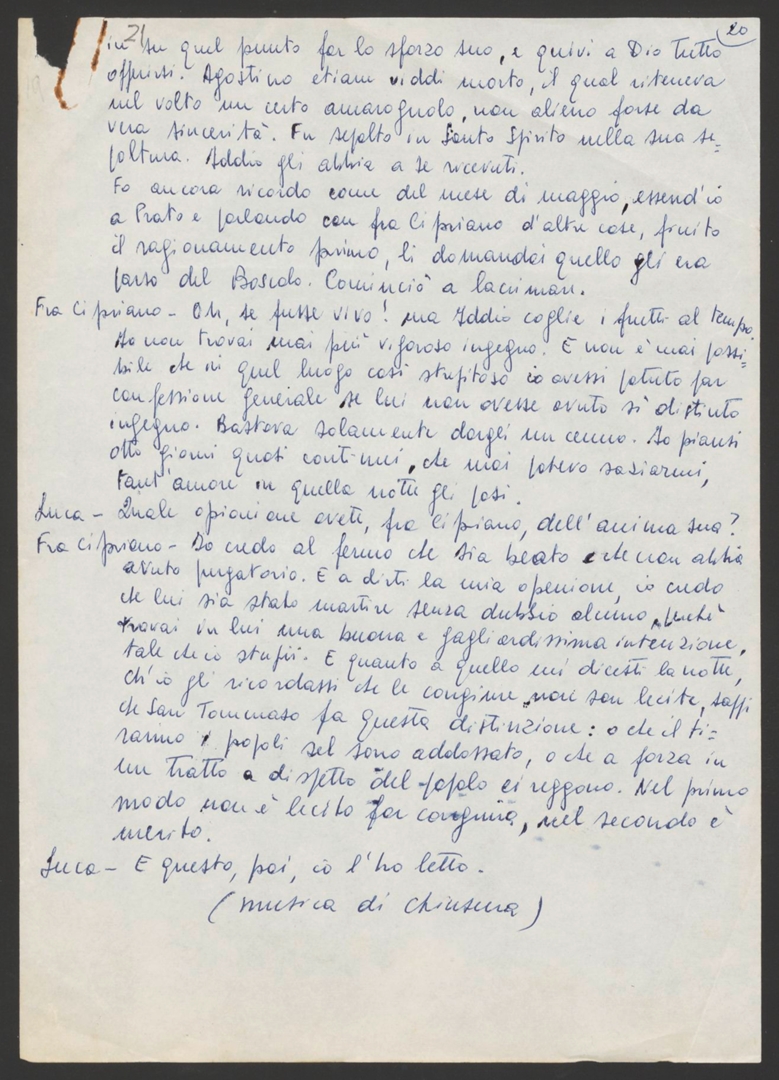 21
20
in su quel punto far lo sforzo suo, e quivi a Dio tutto
offrirsi. Agostino etiam viddi morto, il qual riteneva
nel volto un certo amarognolo, non alieno forse da
vera sincerità. Fu sepolto in Santo Spirito nella sua se=
poltura. Iddio gli abbia a se ricevuti.
Fo ancora ricordo come del mese di maggio, essend'io
a Prato e parlando con fra Cipriano d'altre cose, finito
il ragionamento primo, li domandai quello gli era
parso del Boscolo. Cominciò a lacrimare.
Fra Cipriano - Oh, se fusse vivo! ma Iddio coglie i frutti al tempo.
Io non trovai mai più vigoroso ingegno. E non è mai possi=
bile che in quel luogo così strepitoso io avessi potuto far
confessione generale se lui non avesse avuto sì distinto
ingegno. Bastava solamente dargli un cenno. Io piansi
otto giorni quasi continui, che mai potevo saziarmi,
tant'amore in quella notte gli posi.
Luca - Quale opinione avete, fra Cipriano, dell'anima sua?
Fra Cipriano - Io credo al fermo che sia beato e che non abbia
avuto purgatorio. E a dirti la mia openione, io credo
che lui sia stato martire senza dubbio alcuno, perché
trovai in lui una buona e gagliardissima intenzione,
tale che io stupii. E quanto a quello mi dicesti la notte,
ch'io gli ricordassi che le congiure non son lecite, sappi
che San Tommaso fa questa distinzione: o che il ti=
ranno i popoli sel sono addossato, o che a forza in
un tratto a dispetto del popolo ei reggono. Nel primo
modo non è lecito far congiura, nel secondo è
merito.
Luca - E questo, poi, io l'ho letto.
(musica di chiusura)